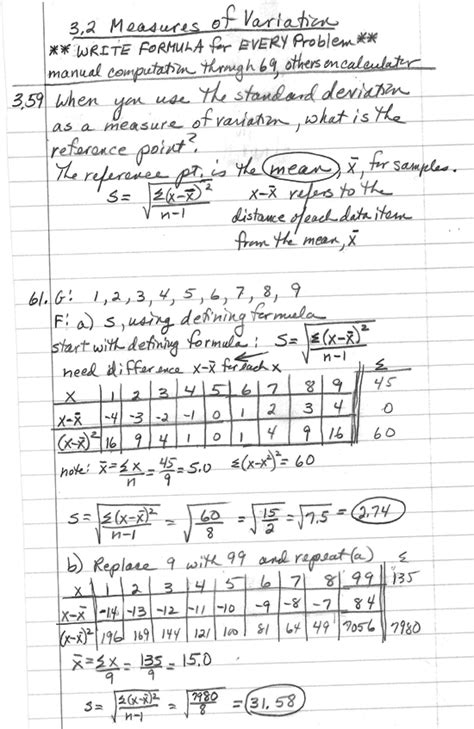 3.2 Measures of Variation
** WRITE FORMULA for EVERY Problem **
manual computation through 69, others on calculator
3.59 When you use the standard deviation
as a measure of variation, what is the
reference point?
The reference pt. is the mean, x̄, for samples.
S = √(Σ(x-x̄)²/n-1) x-x̄ refers to the
distance of each data item
from the mean, x̄
61. G: 1, 2, 3, 4, 5, 6, 7, 8, 9
F: a) s, using defining formula
start with defining formula: S = √(Σ(x-x̄)²/n-1)
need difference x-x̄ for each x
x | 1 | 2 | 3 | 4 | 5 | 6 | 7 | 8 | 9 | Σ 45
x-x̄ | -4 | -3 | -2 | -1 | 0 | 1 | 2 | 3 | 4 | 0
(x-x̄)² | 16 | 9 | 4 | 1 | 0 | 1 | 4 | 9 | 16 | 60
note: x̄ = Σx/n = 45/9 = 5.0 Σ(x-x²)² = 60
S = √(Σ(x-x̄)²/n-1) = √(60/8) = √(15/2) = √7.5 = 2.74
b) Replace 9 with 99 and repeat (a)
x | 1 | 2 | 3 | 4 | 5 | 6 | 7 | 8 | 99 | Σ 135
x-x̄ | -14 | -13 | -12 | -11 | -10 | -9 | -8 | -7 | 84
(x-x̄)² | 196 | 169 | 144 | 121 | 100 | 81 | 64 | 49 | 7056 | 7980
x̄ = Σx/9 = 135/9 = 15.0
S = √(Σ(x-x̄)²/n-1) = √(7980/8) = 31.58